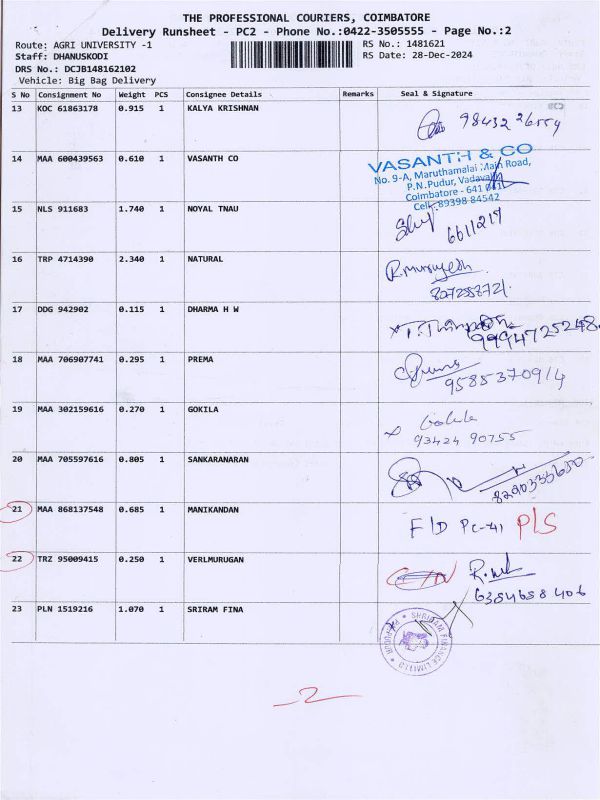 THE PROFESSIONAL COURIERS, COIMBATORE
Delivery Runsheet - PC2 - Phone No.:0422-3505555 - Page No.:2
Route: AGRI UNIVERSITY -1
RS No.: 1481621
Staff: DHANUSKODI
RS Date: 28-Dec-2024
DRS No.: DCJB148162102
Vehicle: Big Bag Delivery
S No Consignment No Weight PCS Consignee Details Remarks Seal & Signature
13 KOC 61863178 0.915 1 KALYA KRISHNAN
14 MAA 600439563 0.610 1 VASANTH CO
VASANTH & CO
No. 9-A, Maruthamalai Main Road,
P.N.Pudur, Vadavalli
Coimbatore - 641 041
Cell: 89398 84542
15 NLS 911683 1.740 1 NOYAL TNAU
6611219
16 TRP 4714390 2.340 1 NATURAL
R.murugesh
17 DDG 942902 0.115 1 DHARMA H W
9994725248
18 MAA 706907741 0.295 1 PREMA
9585370914
19 MAA 302159616 0.270 1 GOKILA
Gokila
93424 90755
20 MAA 705597616 0.805 1 SANKARANARAN
21 MAA 868137548 0.685 1 MANIKANDAN
F/D Pc-41 P/S
22 TRZ 95009415 0.250 1 VERLMURUGAN
6384658406
23 PLN 1519216 1.070 1 SRIRAM FINA
SHRIRAM FINANCE LIMITED
2